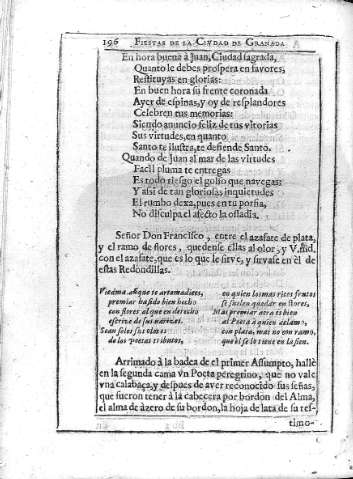 196 FIESTAS DE LA CIVDAD DE GRANADA
En hora buena à Juan, Ciudad sagrada,
Quanto le debes prospera en favores,
Restituyas en glorias:
En buen hora su frente coronada
Ayer de espinas, y oy de resplandores
Celebren tus memorias:
Siendo anuncio feliz de tus vitorias
Sus virtudes, en quanto
Santo te ilustra, te defiende Santo.
Quando de Juan al mar de las virtudes
Facil pluma te entregas
Es todo riesgo el golfo que navegas:
Y assi de tan gloriosas inquietudes
El rumbo dexa, pues en tu porfia,
No disculpa el afecto la ossadia.
Señor Don Francisco, entre el azafate de plata,
y el ramo de flores, quedense ellas al olor, y V.md.
con el azafate, que es lo que le sirve, y sirvase en èl de
estas Redondillas.
premiar ha sido bien hecho
con flores al que en derecho
escrive de sus narizes.
de los Poetas tributos,
en quien los mas ricos frutos
se suelen quedar en flores,
Mas premiar otra es bien
al Poeta à quien aclamo,
con plata, mas no con ramo,
que èl se lo tiene en la sien.
Arrimado à la badea de el primer Assumpto, hallè
en la segunda cama vn Poeta peregrino, que no vale
vna calabaça, y despues de aver reconocido sus señas,
que fueron tener à la cabecera por bordon del Alma,
el alma de àzero de su bordon, la hoja de lata de su tes-
timo-